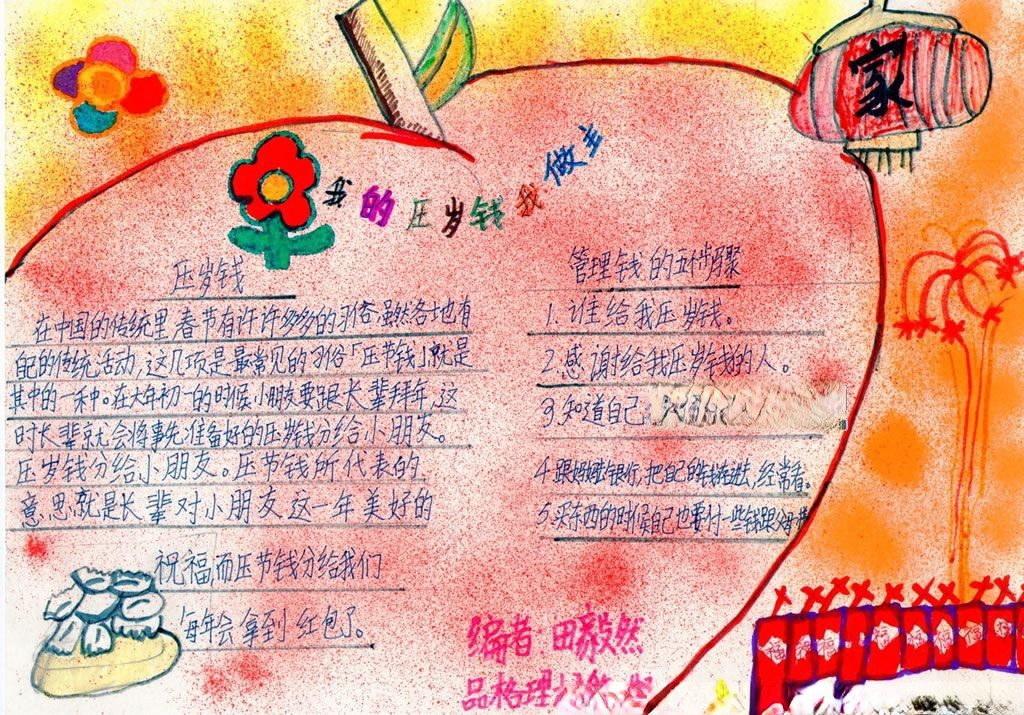 我的压岁钱我做主
家
压岁钱
在中国的传统里春节有许许多多的习俗虽然各地也有
自己的传统活动,这几项是最常见的习俗「压节钱」就是
其中的一种。在大年初一的时候小朋友要跟长辈拜年,这
时长辈就会将事先准备好的压岁钱分给小朋友。
压岁钱分给小朋友。压节钱所代表的
意思就是长辈对小朋友这一年美好的
祝福而压节钱分给我们
每年会拿到红包了。
管理钱的五个步骤
1.谁给我压岁钱。
2.感谢给我压岁钱的人。
3.知道自己
4.跟妈妈去银行,把自己的钱存进去,经常看。
5.买东西的时候自己也要付一些钱跟父母
编者:田毅然
品格理
福 福 福 福 福 福 福